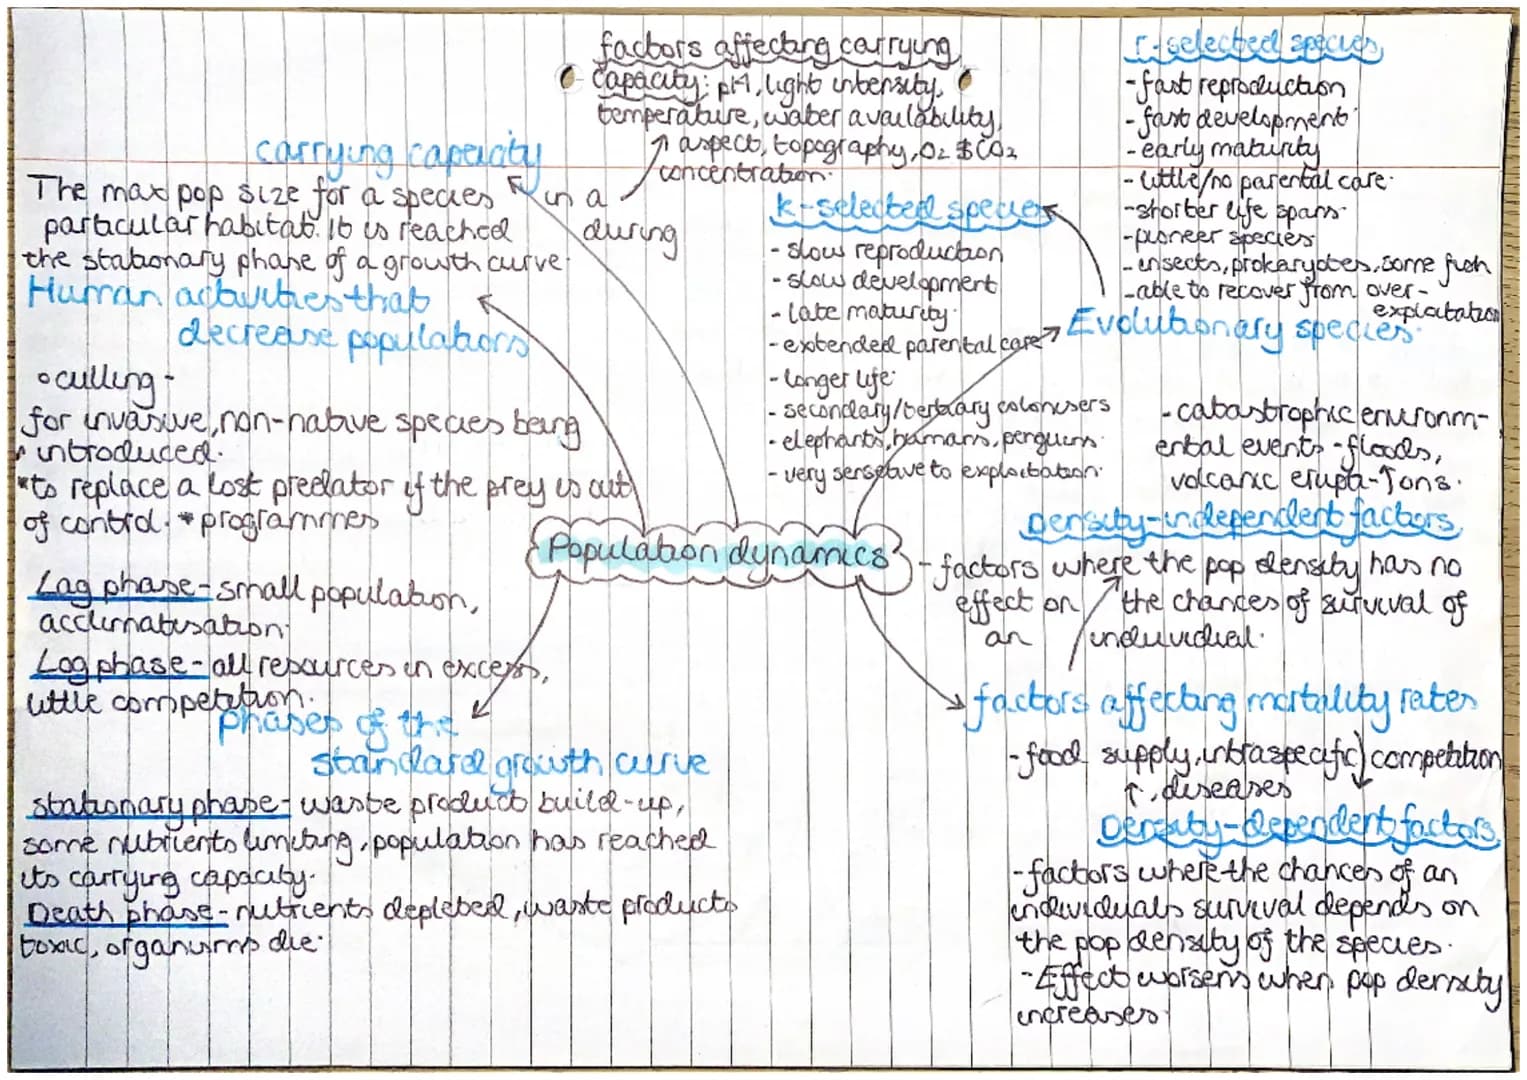 factors affecting carrying
capacity: pH, light intensity,
temperature, water availability,
aspect, topography, O2 & CO2
concentration.
carrying capacity
The max pop size for a species in a
particular habitat. It is reached during
the stationary phase of a growth curve.
Human activities that
decrease populations
culling -
for invasive, non-native species being
introduced.
*to replace a lost predator if the prey is out
of control. *programmes
Lag phase - small population,
acclimatisation.
Log phase - all resources in excess,
little competition.
phases of the
standard growth curve
stationary phase - waste product build-up,
some nutrients limiting, population has reached
its carrying capacity.
Death phase - nutrients depleted, waste products
toxic, organisms die.
Population dynamics
k-selected species
- slow reproduction
- slow development
- late maturity.
- extended parental care
- longer life.
- secondary/tertiary colonisers
- elephants, humans, penguins.
- very sensetave to exploitation.
r-selected species
- fast reproduction
- fast development
- early maturity
- little/no parental care.
- shorter life spans.
- pioneer species
- insects, prokaryotes, some fish
- able to recover from over-
exploitation
Evolutionary species.
- catastrophic environm-
ental events - floods,
volcanic erupt-ions.
Density-independent factors
- factors where the pop density has no
effect on the chances of survival of
an individual.
factors affecting mortality rates
- food supply, intraspecific competition
, diseases
Density-dependent factors
- factors where the chances of an
individuals survival depends on
the pop density of the species.
- Effect worsens when pop density
increases.